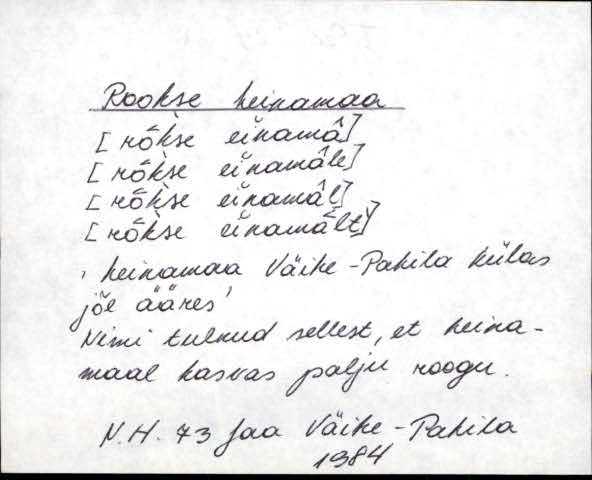 Rookse heinamaa
[rȭk̀se eĭnamâ]
[rȭk̀se eĭnamâle]
[rȭk̀se eĭnamâl]
[rȭk̀se eĭnamâlt]
' heinamaa Väike-Pahila külas
jõe ääres'
Nimi tulnud sellest, et heina-
maal kasvas palju roogu.
N.H. 73 Jaa Väike-Pahila
1984